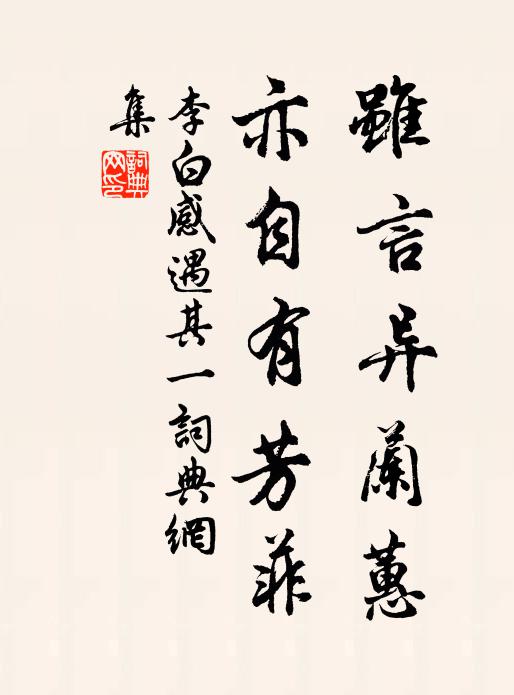 雖言异蘭蕙
亦自有芳菲
李白感遇其一詞典網
集
詞典
网印